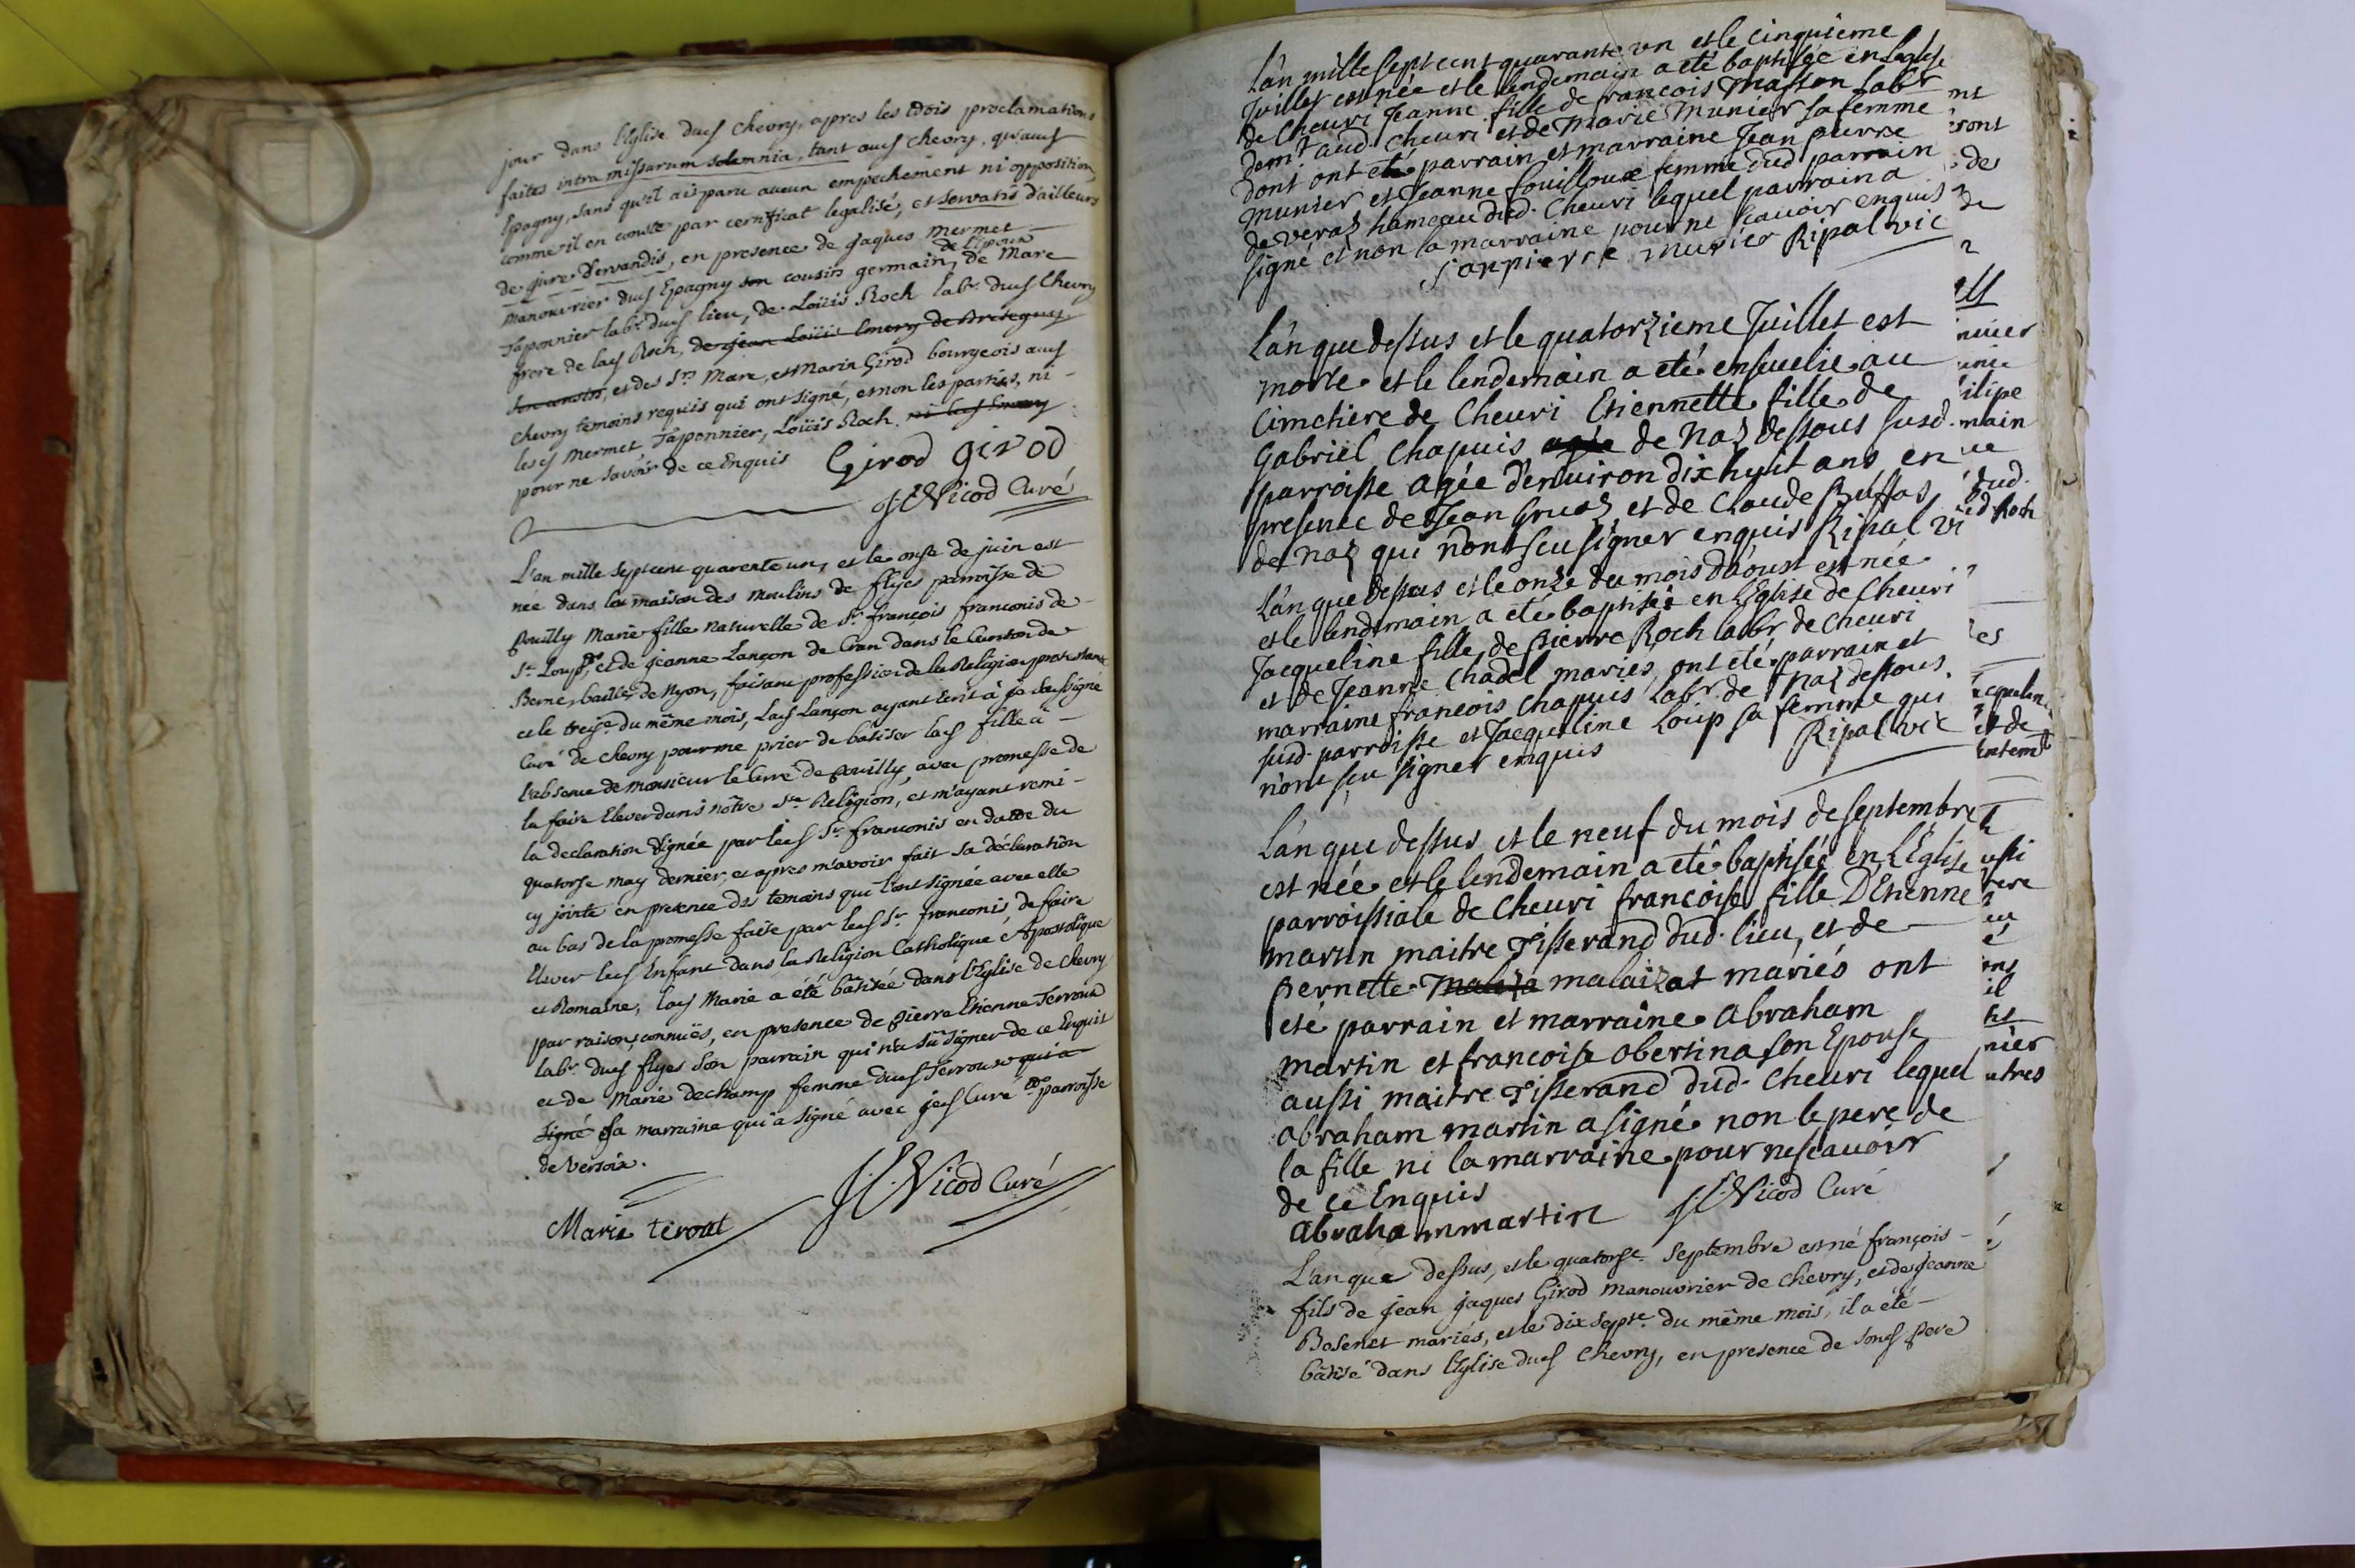 jour dans l'Eglise dud Chevry, apres les trois proclamations
faites intra missarum solemnia, tant aud Chevry, qu'aud
Epagny, sans qu'il ait paru aucun empechement ni opposition
comme il en conste par certificat legalisé, et servatis d'ailleurs
de jure servandis, en presence de Jaques Mermet
manouvrier dud Epagny son cousin germain, de Marc
de l'Epoux
Taponnier labr. dud lieu, de Loüis Roch labr. dud Chevry
frere de lad Roch, de Jean Loüis Emery de Bretegny
son cousin, et des Srs Marc, et Marin Girod bourgeois aud
Chevry temoins requis qui ont signé, et non les parties, ni
lesd Mermet, Taponnier, Loüis Roch, ni led Emery
pour ne savoir de ce Enquis Girod girod
J.C. Nicod Curé
L'an mille sept cent quarente un, et le onse de juin est
née dans la maison des moulins de flyes parroisse de
Pouilly Marie fille naturelle de Sr. françois franconis de
St. Loup, et de Jeanne Lançon de Cran dans le Canton de
Berne, baillage de Nyon, faisant profession de la Religion protestante
et le treise du même mois, lad Lançon ayant Ecrit à je soussigné
Curé de Chevry pour me prier de batiser lad fille à
l'absence de monsieur le Curé de Pouilly, avec promesse de
la faire Elever dans nôtre Ste Religion, et m'ayant remi
la declaration signée par led Sr. franconis en datte du
quatorse may dernier, et apres m'avoir fait sa déclaration
cy jointe en presence des temoins qui l'ont signée avec elle
au bas de la promesse faite par led Sr. franconis, de faire
Elever led Enfant dans la Religion Catholique Apostolique
et Romaine, lad Marie a été bâtisée dans l'Eglise de Chevry
par raisons connuës, en presence de Pierre Etienne Terroux
labr. dud flyes son parrain qui n'a su signer de ce Enquis
et de Marie dechamp femme dud Terroux qui a
signé sa marraine qui a signé avec jed Curé parroisse
de Versoix.
Marie teroul J.C. Nicod Curé
L'an mille sept cent quarante vn et le cinquieme
Juillet est née et le lendemain a eté baptisée en leglise
de Cheuri Jeanne fille de francois Masson Labr
demt. aud. Cheuri et de Marie Munier sa femme
dont ont eté parrain et marraine Jean pierre
munier et Jeanne fouilloux femme dud parrain
de veraz hameau dud. Cheuri lequel parrain a
signé et non la marraine pour ne scauoir enquis
jan pierre munier Ripal vic
L'an que dessus et le quatorzieme Juillet est
morte et le lendemain a eté ensuelie au
Cimetiere de Cheuri Etiennette fille de
Gabriel Chapuis agée de Naz dessous susd.
parroisse agée d'enuiron dix hyit ans, en
presence de Jean Gruaz, et de Claude Buffas
de naz qui n'ont scu signer enquis Ripal vi
L'an que dessus et le onze du mois d'aoust est née
et le lendemain a eté baptisée en l'Eglise de Cheuri
Jacqueline fille de Pierre Roch labr de Cheuri
et de Jeanne Chadel mariés, ont eté parrain et
marraine francois Chapuis Labr. de Naz dessous
susd. parroisse et Jacqueline Loup sa femme qui
n'ont scu signer enquis Ripal vic
L'an que dessus et le neuf du mois de septembre
est née et le lendemain a eté baptisée en l'Eglise
parroissiale de Cheuri francoise fille D'Etienne
martin maitre Tisserand dud. lieu, et de
pernette Malza malaizat mariés ont
eté parrain et marraine Abraham
martin et francoise obertina son Epouse
aussi maitre Tisserand dud. Cheuri lequel
Abraham martin a signé non le pere de
la fille ni la marraine pour ne scauoir
de ce Enquis
Abraham martin J.C. Nicod Curé
L'an que dessus, et le quatorse septembre est né françois
fils de Jean Jaques Girod manouvrier de Chevry, et de Jeanne
Bosenet mariés, et le dix septe. du même mois, il a été
bâtisé dans l'Eglise dud Chevry, en presence de sond Pere